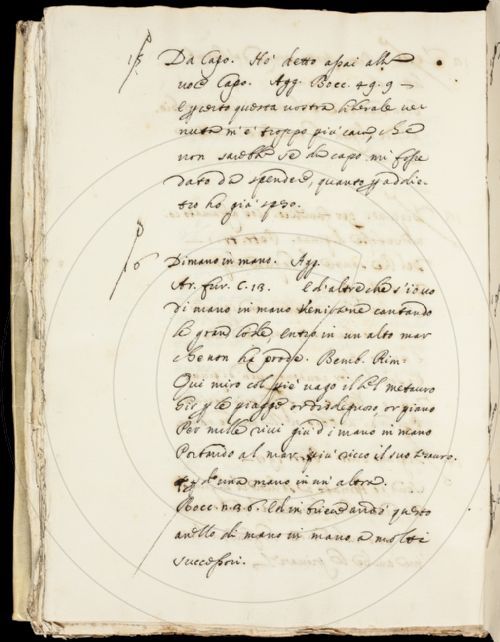 15 Da Capo. Ho' detto assai alla
voce Capo. Agg. Bocc. 49. 9 —
E certo questa vostra liberale ve-
nuta m'è troppo più cara, che
non sarebbe se da capo mi fosse
dato da spendere, quanto p addie-
tro ho già speso.
16 Di mano in mano. Agg.
Ar. fur. C. 13. E d'altre che s'io vo
di mano in mano venirtene cantando
le gran lode, entro in un alto mar
che non ha prode. Bemb. Rim:
Qui miro col piè vago il bel metauro
Gir p le piagge or disdegnoso, or piano
Per mille rivi giù di mano in mano
Portando al mar più ricco il suo tesauro.
d'una mano in un' altra.
Bocc. n. 3. 6. E di in questo
anello di mano in mano a molti
successori.